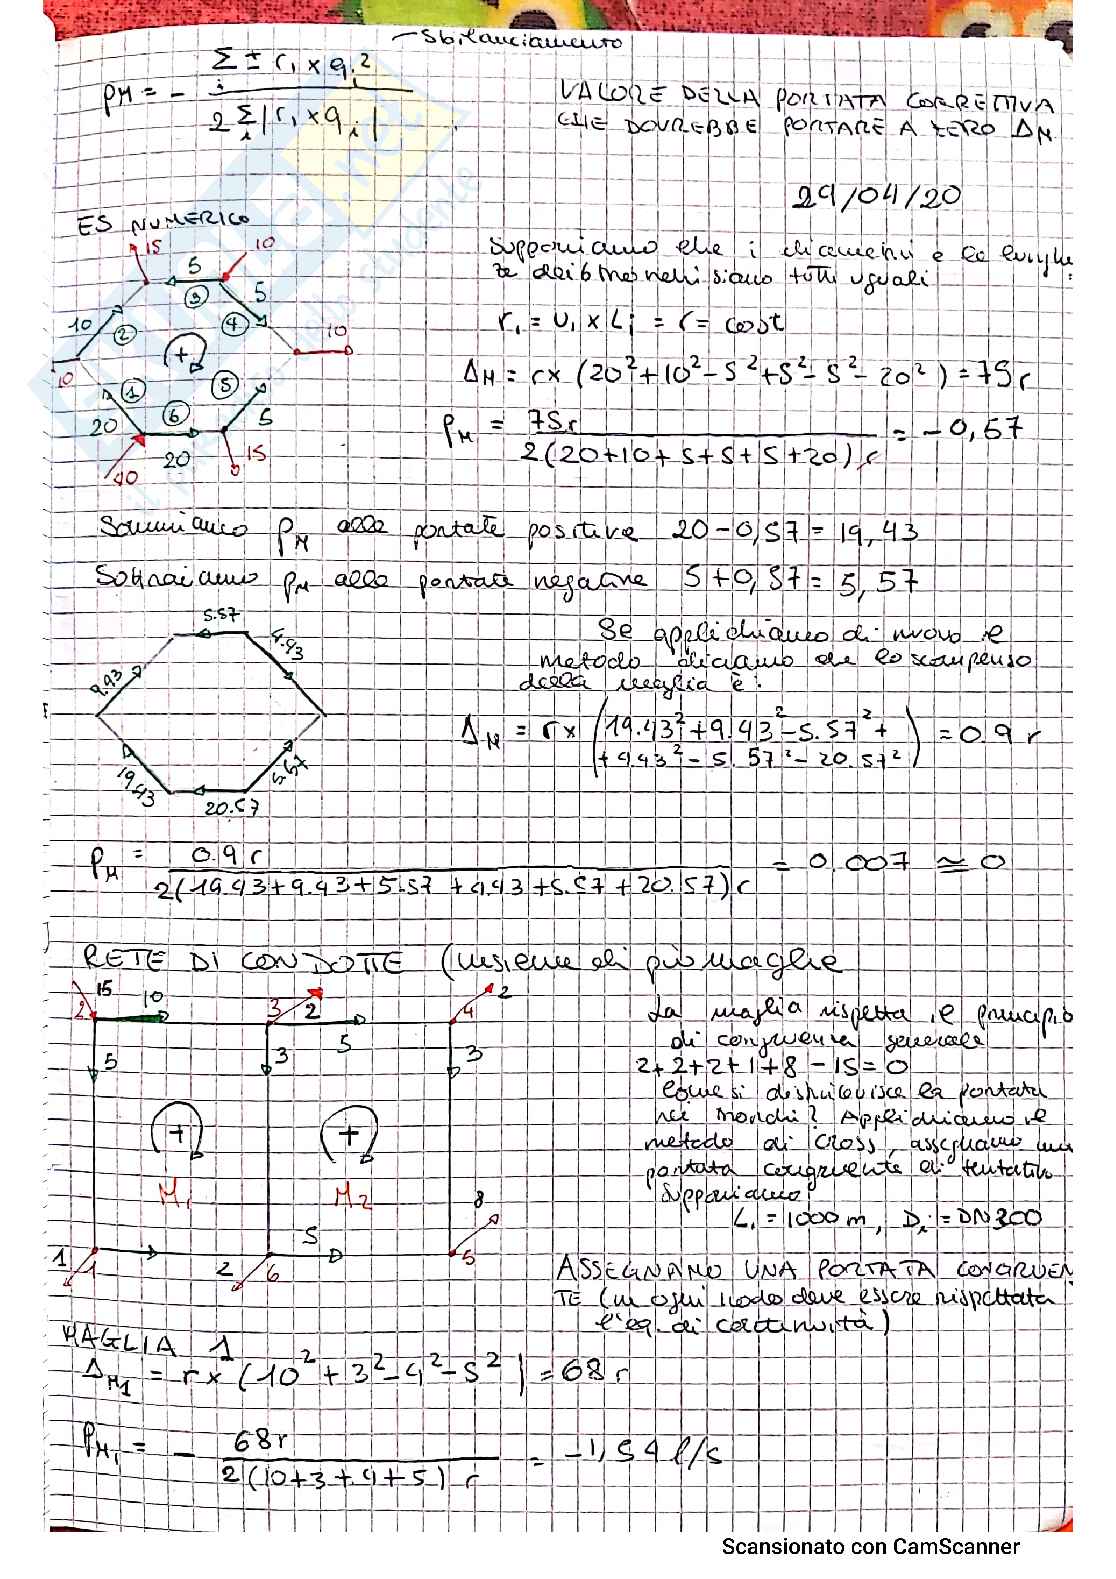 Sbilanciamento
ρM = - Σi ± ri × qi² / 2 Σi |ri × qi|
VALORE DELLA PORTATA CORRETTIVA
CHE DOVREBBE PORTARE A ZERO ΔM
29/04/20
ES NUMERICO
15
10
5
3
5
10
2
4
10
+
10
1
5
20
6
5
20
15
40
Supponiamo che i diametri e le lunghe
ze dei 6 tronchi siano tutti uguali
ri = Ui × Li = r = cost
ΔM = r × (20² + 10² - 5² + 5² - 5² - 20²) = 75 r
ρM = 75 r / 2(20+10+5+5+5+20) r = -0,57
Sommiamo ρM alle portate positive 20 - 0,57 = 19,43
Sottraiamo ρM alle portate negative 5 + 0,57 = 5,57
5.57
4.43
9.43
19.43
5.57
20.57
Se applichiamo di nuovo il
metodo diciamo che lo scompenso
della maglia è:
ΔM = r × (19.43² + 9.43² - 5.57² +
+ 4.43² - 5.57² - 20.57²) = 0.9 r
ρM = 0.9 r / 2(19.43+9.43+5.57+4.43+5.57+20.57) r = 0.007 ≃ 0
RETE DI CONDOTTE (insieme di più maglie
15
10
2
3
2
4
2
5
5
3
3
+
+
M1
M2
8
5
1
1
2
6
5
La maglia rispetta il principio
di congruenza generale
2+2+2+1+8-15=0
Come si distribuisce la portata
nei tronchi? Applichiamo il
metodo di Cross, assegnamo una
portata congruente di tentativo
Supponiamo:
Li = 1000 m, Di = DN300
ASSEGNAMO UNA PORTATA CONGRUEN
TE (in ogni nodo deve essere rispettata
l'eq. di continuità)
MAGLIA 1
ΔM1 = r × (10² + 3² - 4² - 5²) = 68 r
ρM1 = - 68 r / 2(10+3+4+5) r = -1,54 l/s
Scansionato con CamScanner